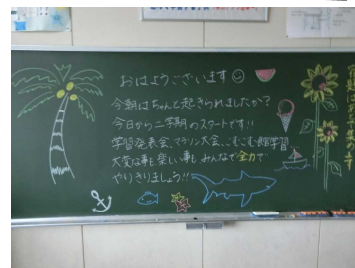 おはようございます
今朝はちゃんと起きられましたか?
今日から二学期のスタートです!!
学習発表会、マラソン大会、こむこむ館学習
大変な事も楽しい事も みんなで全力で
やりきりましょう!!